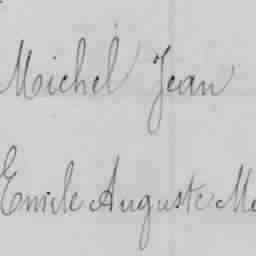 Michel Jean
Emile Auguste Me